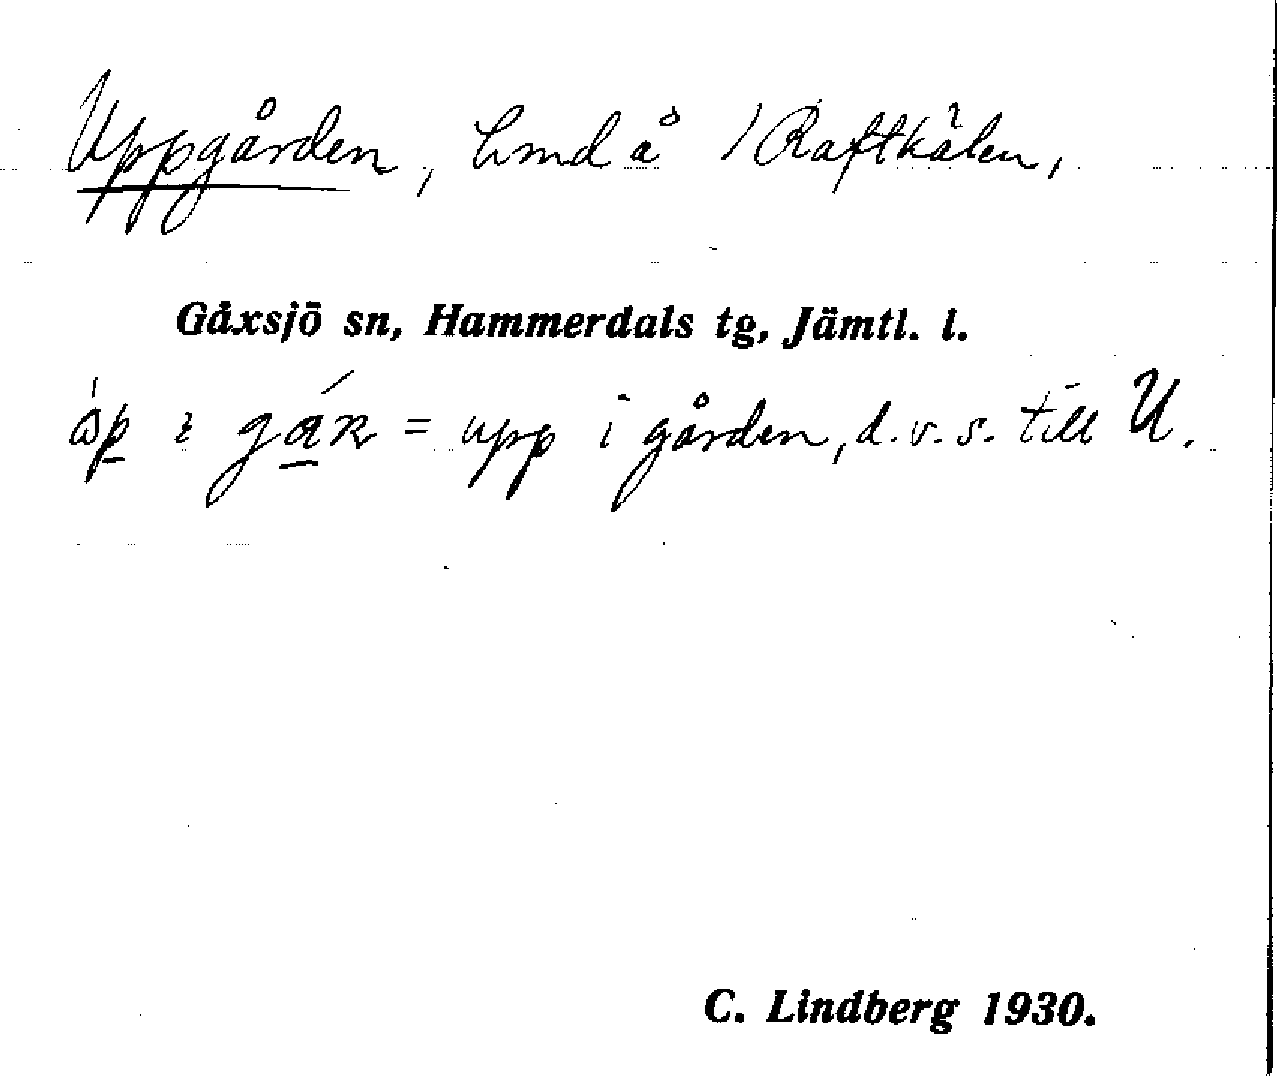 Uppgården, hmd å 1 Raftkälen,
Gåxsjö sn, Hammerdals tg, Jämtl. l.
= upp i gården, d.v.s. till U.
C. Lindberg 1930.